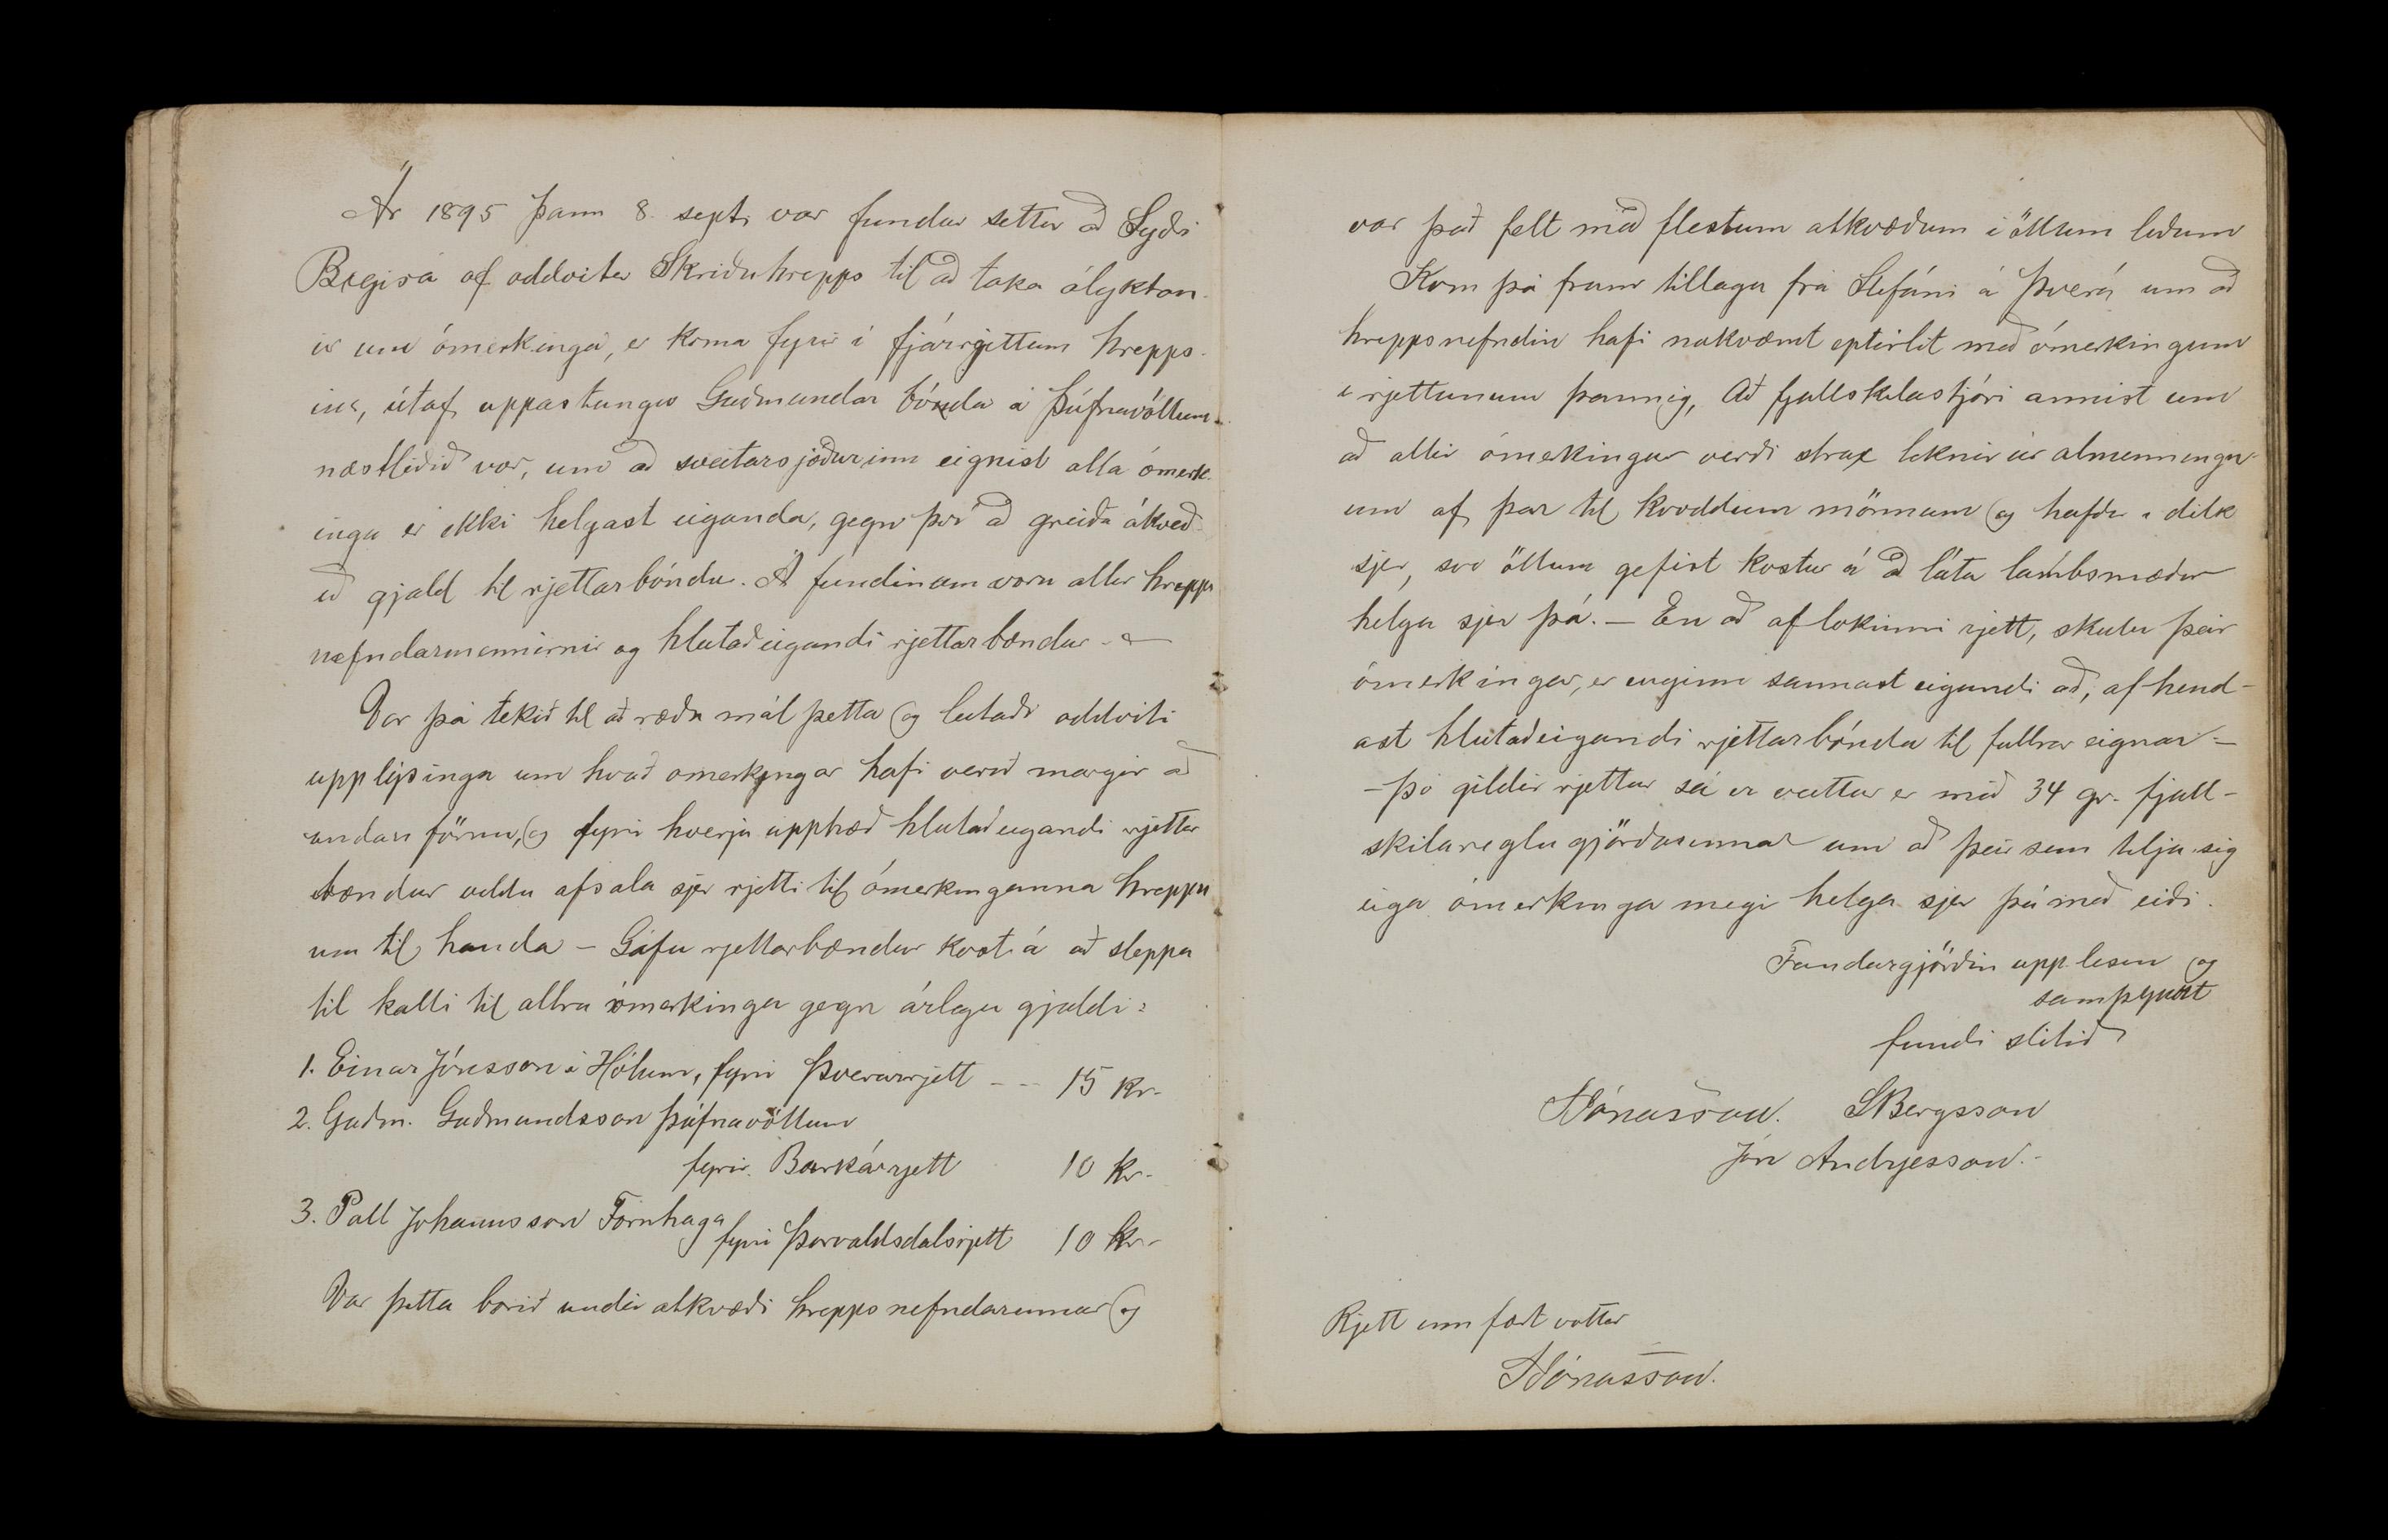 Ár 1895 þann 8. sept. var fundur settur að Syðri
Bægisá af oddvita Skriðuhrepps til að taka ályktan-
ir um ómerkinga, er koma fyrir í fjárrjettum hrepps-
ins, útaf uppástungu Guðmundar bónda á Þúfnavöllum
næstliðið vor, um að sveitarsjóðurinn eignist alla ómerk-
inga er ekki helgast eiganda, gegn því að greiða ákveð-
ið gjald til rjettarbónda. Á fundinum voru allir hrepps
nefndarmennirnir og hlutaðeigandi rjettarbændur -
Var þá tekið til að ræða mál þetta og leitaði oddviti
upplýsinga um hvað omerkingar hafi verið margir að
undan förnu, og fyrir hverja upphæð hlutaðeigandi rjettar
bændur vildu afsala sjer rjetti til ómerkinganna hreppn
um til handa - Gáfu rjettarbændur kost á að sleppa
til kalli til allra ómerkinga gegn árlegu gjaldi:
1. Einar Jónsson á Hólum, fyrir Þverárrjett - - 15 kr-
2. Guðm. Guðmundsson Þúfnavöllum
fyrir Barkárrjett 10 kr-
3. Pall Johannsson Fornhaga
fyrir Þorvaldsdalsrjett 10 kr-
Var þetta borið undir atkvæði hreppsnefndarinnar og
var það felt með flestum atkvæðum i öllum liðum
Kom þá fram tillaga frá Stefáni á Þverá um að
hreppsnefndin hafi nakvæmt eptirlit með ómerkingum
i rjettunum þannig, Að fjallskilastjóri annist um
að allir ómerkingar verði strax teknir úr almenningn-
um af þar til kvoddum mönnum og hafðir i dilk
sjer, svo öllum gefist kostur á að láta lambsmæður
helga sjer þá. - En að aflokinni rjett, skulu þeir
ómerkingar, er enginn sannast eigandi að, afhend-
ast hlutaðeigandi rjettarbónda til fullrar eignar -
- Þó gildir rjettur sá er veittur er með 34 gr. fjall-
skilareglugjörðarinnar um að þeir sem telja sig
eiga ómerkinga megi helga sjer þá með eiði.
Fundargjörðin upp lesin og
samþykt
fundi slitið
AJónasson. SBergsson
Jón Andrjesson.-
Rjett inn fært vottar
AJónasson.